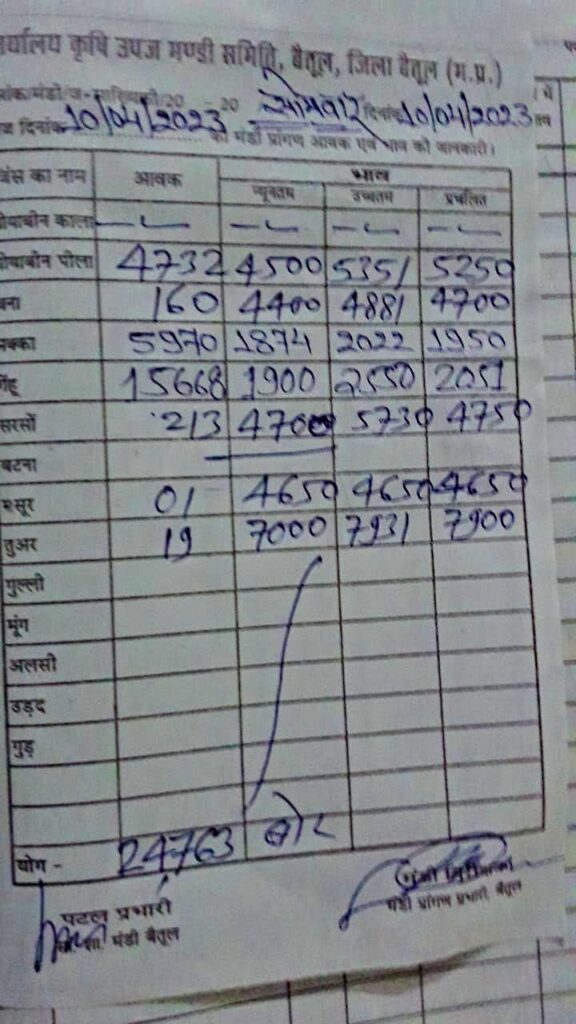 कृषि उपज मण्डी समिति, बैतूल, जिला बैतूल (म.प्र.)
20 -20 सोमवार दिनांक 10/04/2023
दिनांक 10/04/2023 को मंडी प्रांगण आवक एवं भाव की जानकारी।
का नाम आवक भाव
न्यूनतम उच्चतम प्रचलित
काला — — — —
पीला 4732 4500 5351 5250
160 4400 4881 4700
5970 1874 2022 1950
15668 1900 2550 2051
सरसों 213 4700 5730 4750
बटना
मसूर 01 4650 4650 4650
तुअर 19 7000 7931 7900
गुल्ली
मूंग
अलसी
उड़द
गुड़
योग - 24,763 बोरे
पटल प्रभारी
मंडी बैतूल
मंडी प्रांगण प्रभारी, बैतूल